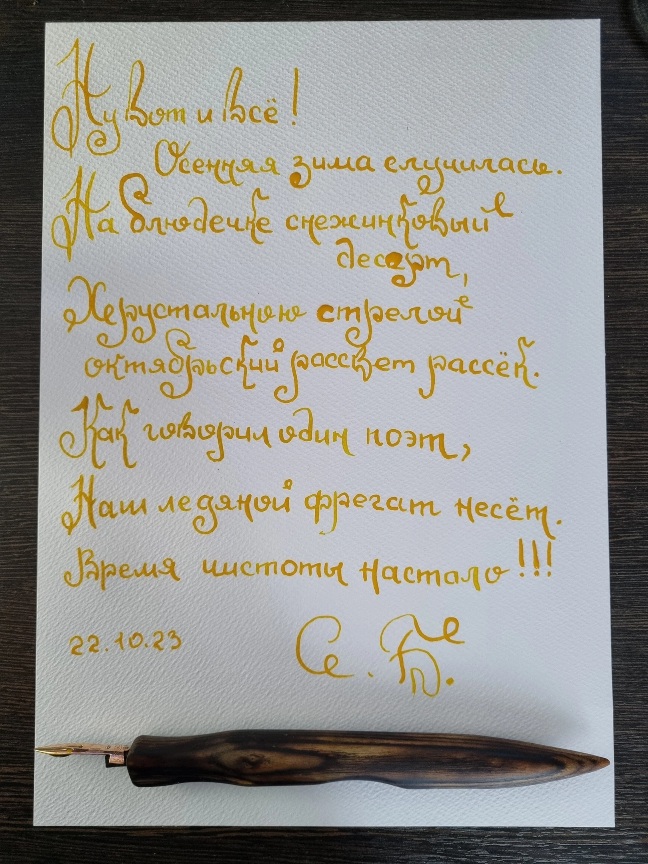 Ну вот и всё!
Осенняя зима случилась.
На блюдечке снежинковый
десерт,
Херустальною стрелой
октябрьский рассвет рассёк.
Как говорил один поэт,
Наш ледяной фрегат несёт.
Время чистоты настало!!!
22.10.23
С. Б.